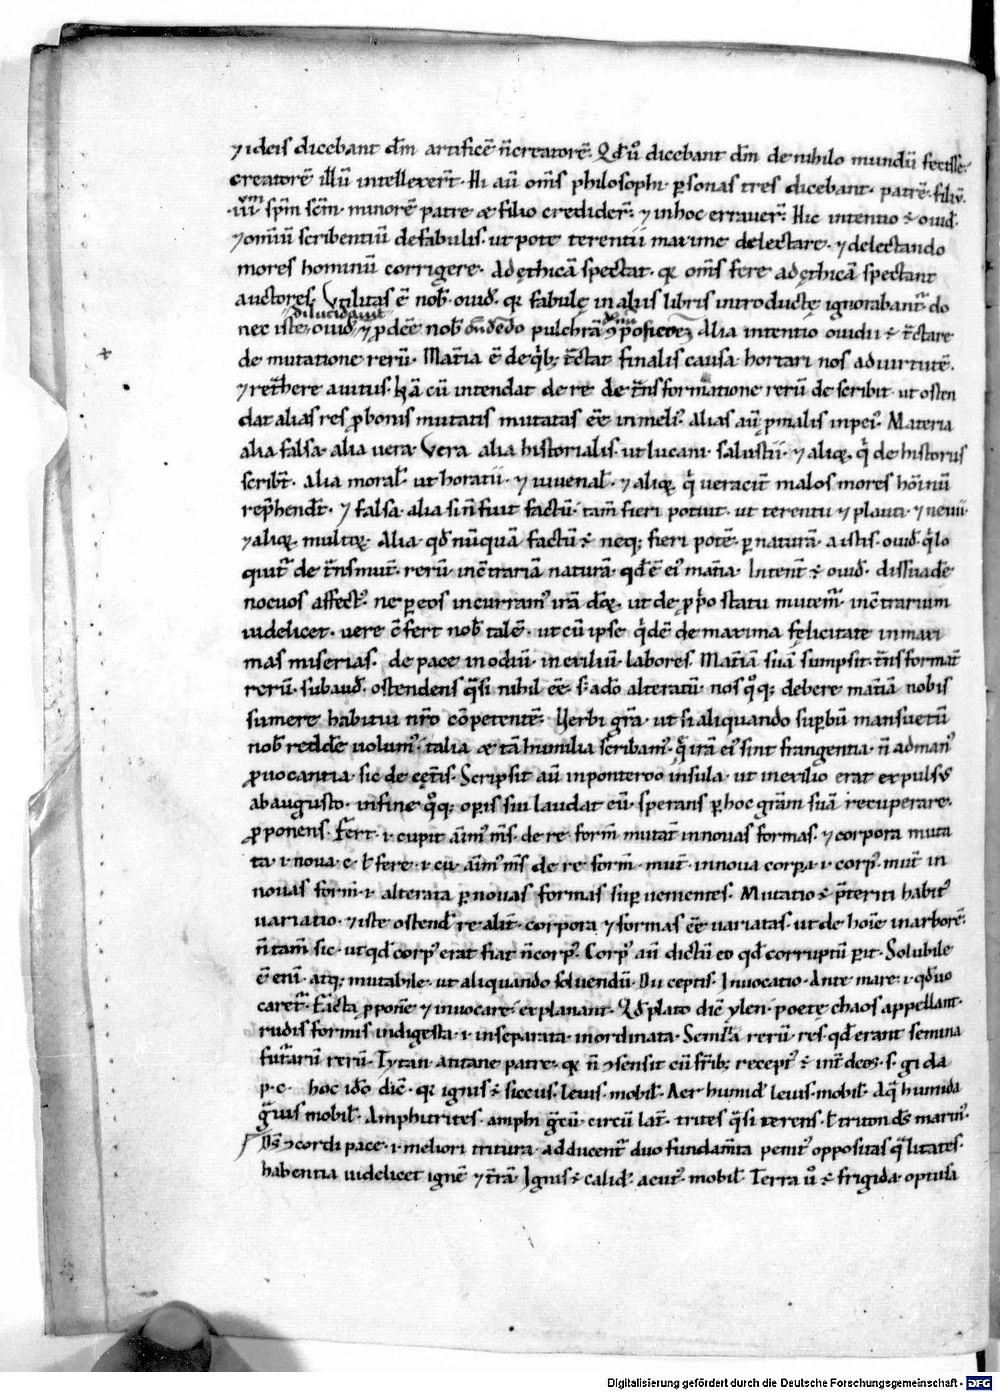 ⁊ ideis dicebant dm̄ artificē n̄ creatorē. Qd̄ u̓o dicebant dm̄ de nihilo mundū fecisse.
creatorē illū intellexer̄t. Hi aū om̄s philosophi personas tres dicebant. patrē. filiū.
sp̄m sc̄m. minorē patre & filio crediderꝰ. ⁊ in hoc errauerꝰ. Hic intentio ÷ ouid̄.
⁊ omniū scribentiū de fabulis. ut pote terentii maxime delectare. ⁊ delectando
mores hominū corrigere. Ad ęthicā spectat. quia om̄s fere ad ęthicā spectant
auctores. Vtilitas ē nob̄. ouid̄. quia fabulę in aliis libris introductę ignorabantur do
nec iste ouid̄ dilucidauit ⁊ prodēē nob̄ pulchrā Alia intentio ouidii ÷ tc̄tare
de mutatione rerū. Mat̄ia ē de quib; tc̄tat finalis causa. hortari nos ad uirtutē.
⁊ ret̄here a uitiis. Nā cū intendat de re de t̄nsformatione rerū describit. ut osten
dat alias res pro bonis mutatis mutatas eē in meliꝰ. alias aū p malis in peiꝰ. Materia
alia falsa. alia uera. Vera alia historialis. ut lucani. salustii. ⁊ alioꝝ. qui de historiis
scribt̄. Alia moral̄. ut horatii. ⁊ iuuenal̄. ⁊ alioꝝ. qui ueracit̄ malos mores hoīnū
rep̄hendt̄. ⁊ falsa. alia si n̄ fuit factū. tam̄ fieri potuit. ut terentii ⁊ plauti. ⁊ neuii.
⁊ alioꝝ. multoꝝ. Alia qd̄ nūquā factū ÷ neq; fieri potē. p naturā. a istis. ouid̄. qui lo
quitur de t̄nsmut̄. rerū. in c̄trariā naturā. qd̄ ē eiꝰ mat̄ia. Intent̄ ÷ ouid̄. dissuadē
nociuos affectꝰ. ne p eos incurramꝰ irā deoꝝ. ut de p̄prio statu mutemur in c̄trarium
uidelicet. uere c̄fert nob̄ talē. ut cū ipse quidē de maxima fęlicitate in maxi
mas miserias. de pace in odiū. in exiliū. labores. Mat̄iā suā sumpsit. t̄nsformat̄
rerū. subaud̄. ostendens quasi nihil eē. s; a deo alteratū. nos quoq; debere mat̄iā nobis
sumere habitui nr̄o cōpetentē. Verbi gr̄a. ut si aliquando supbū mansuetū
nob̄ redde uolumꝰ. talia & tā humilia scribamꝰ. que irā eiꝰ sint frangentia. n̄ ad manꝰ
prouocantia. sic de cęt̄is. Scripsit aū in ponteroo insula. ut in exilio erat expulsꝰ
ab augusto. in fine quoq; opis sui laudat eū. sperans p hoc gr̄am suā recuperare.
proponens. Fert. i. cupit aīmꝰ m̄s. de re form̄ mutat̄ in nouas formas. ⁊ corpora muta
ta. i. noua. c. l̄ fere. i. cū. aīmꝰ m̄s de re form̄. mut̄. in noua corpa. i. corpꝰ. mut̄ in
nouas form̄. i. alterata p nouas formas supuenientes. Mutatio ÷ p̄teriti habitꝰ
uariatio. ⁊ iste ostend̄ re alit̄. corpora ⁊ formas eē uariatas. ut de hoīe in arborē.
n̄ tam̄ sic. ut qd̄ corpꝰ erat fiat n̄ corpꝰ. Corpꝰ aū dictū eo qd̄ corruptū pit. Solubile
ē enī. atq; mutabile. ut aliquando soluendū. Di ceptis. Inuocatio. Ante mare. i. qd̄ uo
caretur. Facta ppone ⁊ inuocare explanant. Qd̄ plato dic̄ ylen. poetę chaos appellant.
rudis formis indigesta. i. inseparata. inordinata. Semina rerū. res qd̄ erant semina
futurarū rerū. Tytan. a titane patre. quia n̄ ꝯsensit cū fr̄ib; receptꝰ ÷ int̄ deos. s. gi da
p. c. hoc idō dic̄. quia ignis ÷ siccus. leuis. mobil̄. Aer humid̄ leuis. mobil̄. Aqua humida
grauis mobil̄. Amphitrites. amphi gr̄cū. circū lat̄. trites quasi terens. l̄ triton ds̄ marinꝰ.
Ds̄ ꝯcordi pace. i. meliori tritura. adducentur duo fundam̄ta penitꝰ oppositas qualitates.
habentia uidelicet ignē ⁊ t̄rā. Ignis ÷ calid̄. acutꝰ. mobil̄. Terra u̓o ÷ frigida. optusa
Digitalisierung gefördert durch die Deutsche Forschungsgemeinschaft - DFG